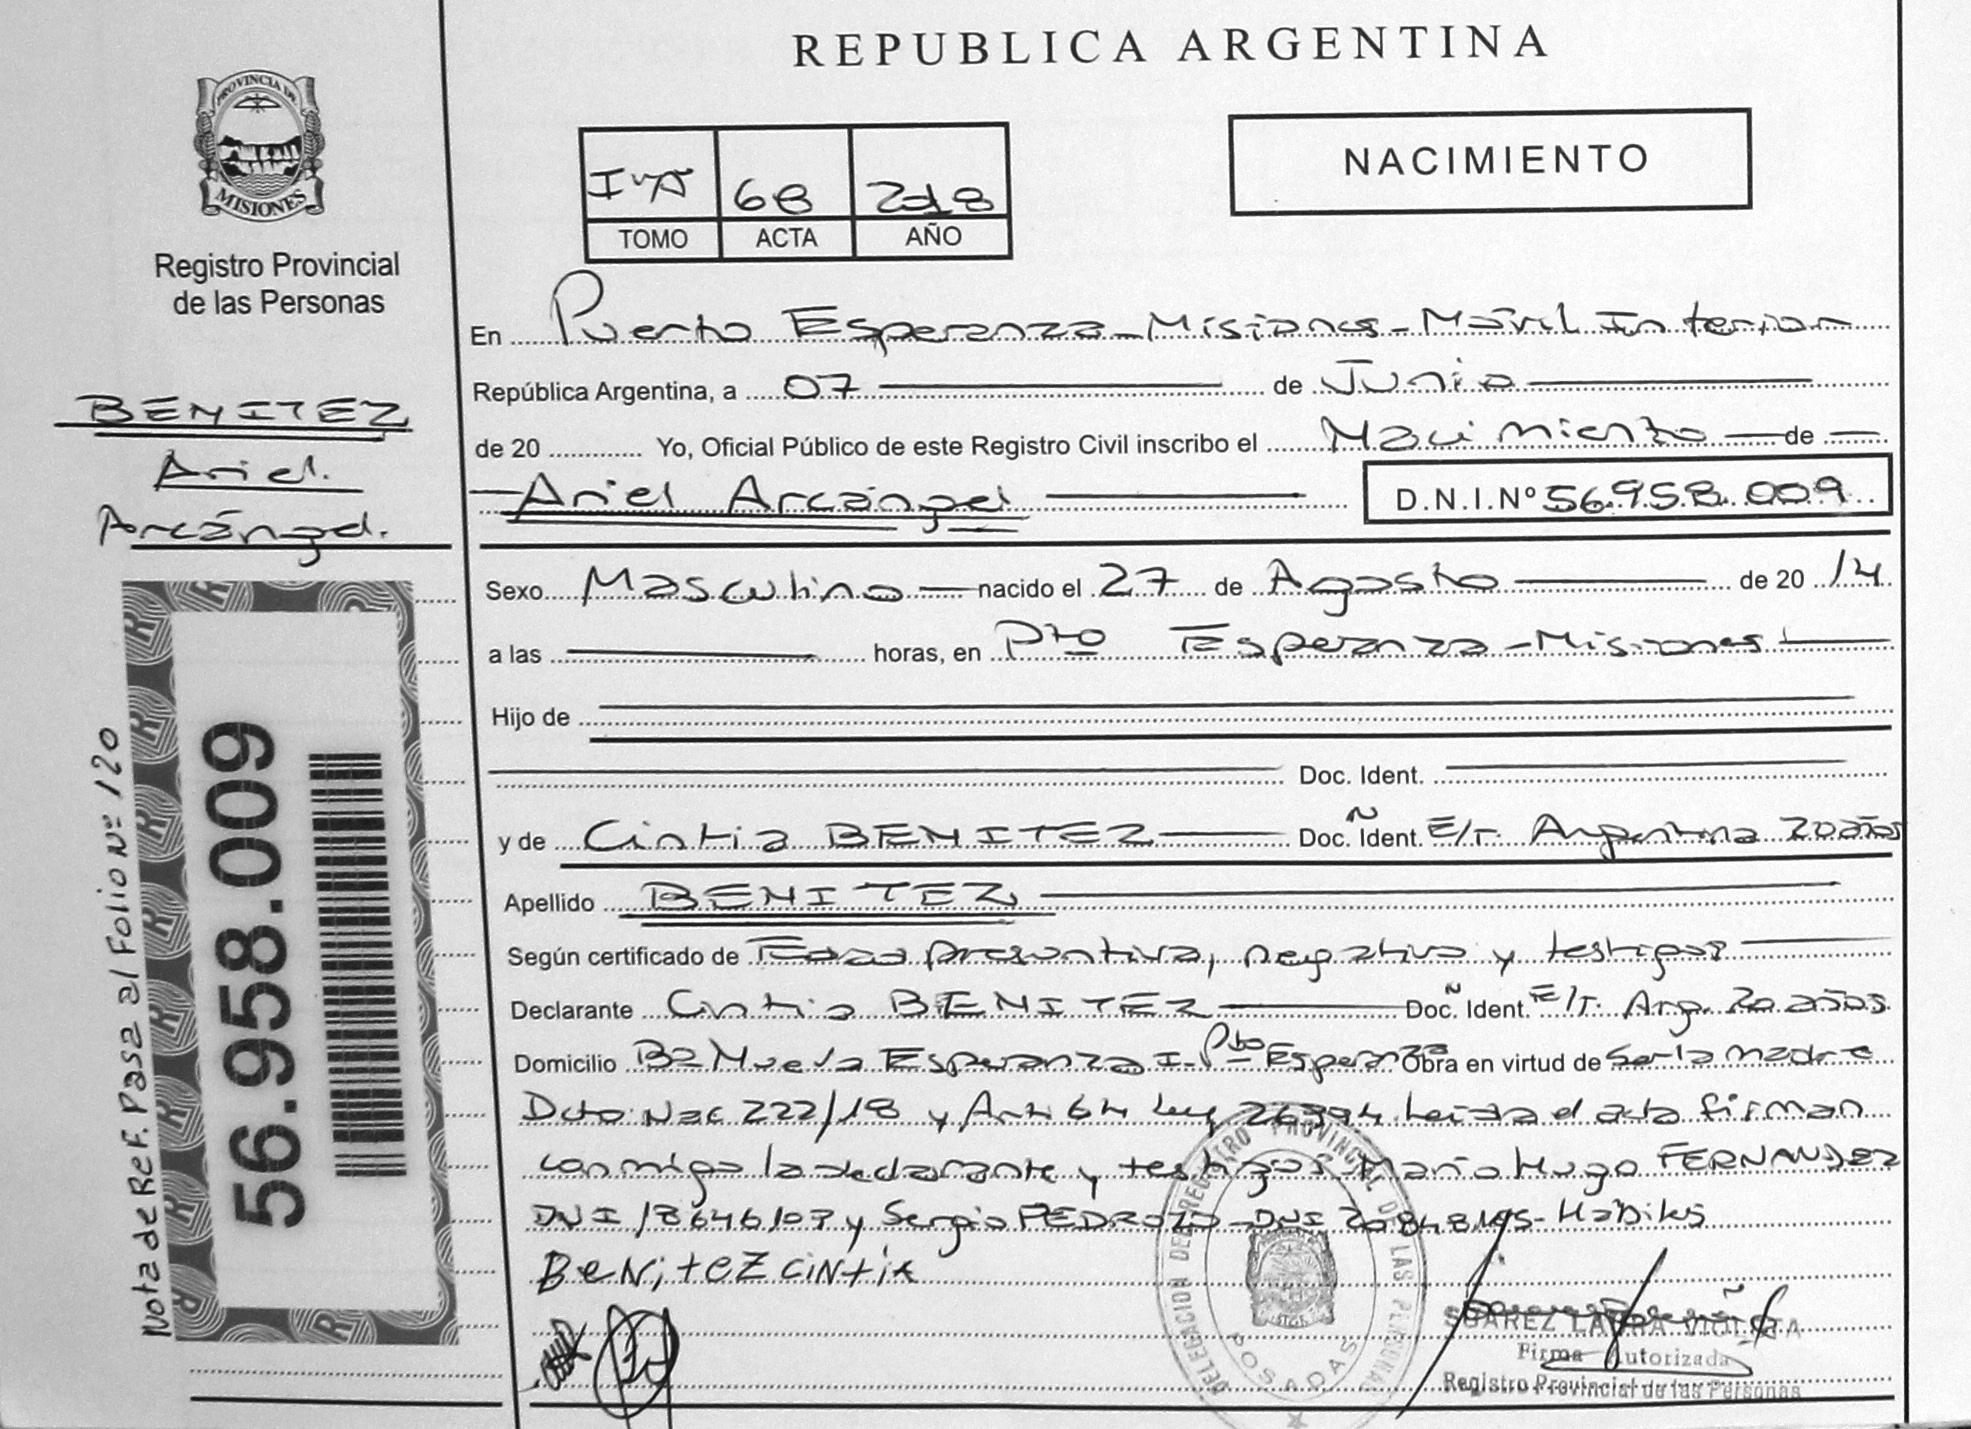 REPUBLICA ARGENTINA
PROVINCIA DE
MISIONES
Registro Provincial
de las Personas
BENITEZ
Ariel
Arcángel.
Nota de Ref. Pasa al Folio Nº 120
56.958.009
68 2018
TOMO ACTA AÑO
NACIMIENTO
En Puerto Esperanza - Misiones - Móvil Interior
República Argentina, a 07 de Junio
de 20 Yo, Oficial Público de este Registro Civil inscribo el Nacimiento de
Ariel Arcángel D.N.I.Nº 56.958.009
Sexo Masculino nacido el 27 de Agosto de 20 14
a las horas, en Pto Esperanza - Misiones
Hijo de
Doc. Ident.
y de Cintia BENITEZ Doc. Ident. E/T. Argentina 20 años
Apellido BENITEZ
Según certificado de presuntiva, negativa y testigos
Declarante Cintia BENITEZ Doc. Ident. E/T. Arg. 20 años
Domicilio Bº Nueva Esperanza I - Pto Esperanza Obra en virtud de Ser la madre
Dcto. Nac 222/18 y Art 64 Ley 26994. Leída el acta firman
conmigo la declarante y testigos Mario Hugo FERNANDEZ
DNI 18646107 y Sergio PEDROZO - DNI
BeNitEZ ciNtiA
DELEGACION DEL REGISTRO PROVINCIAL DE LAS PERSONAS
POSADAS
SUAREZ LAURA VIOLETA
Firma Autorizada
Registro Provincial de las Personas